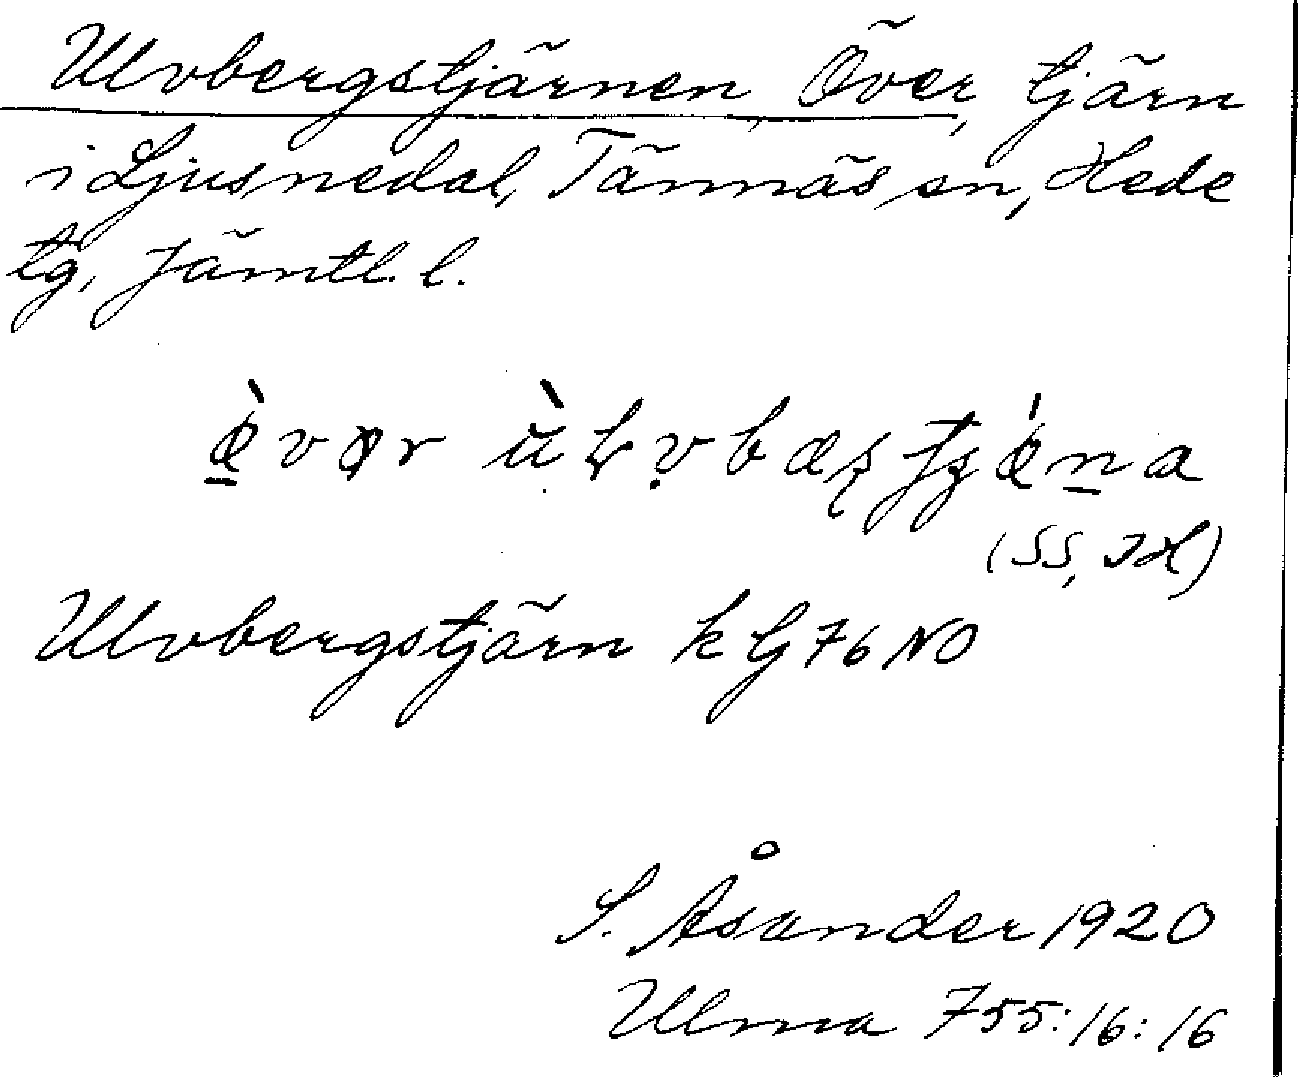 Ulvbergstjärnen, Över, tjärn
i Ljusnedal, Tännäs sn, Hede
tg, Jämtl. l.
(SS, JH)
Ulvbergstjärn k G 76 NO
S. Åsander 1920
Ulma 755:16:16